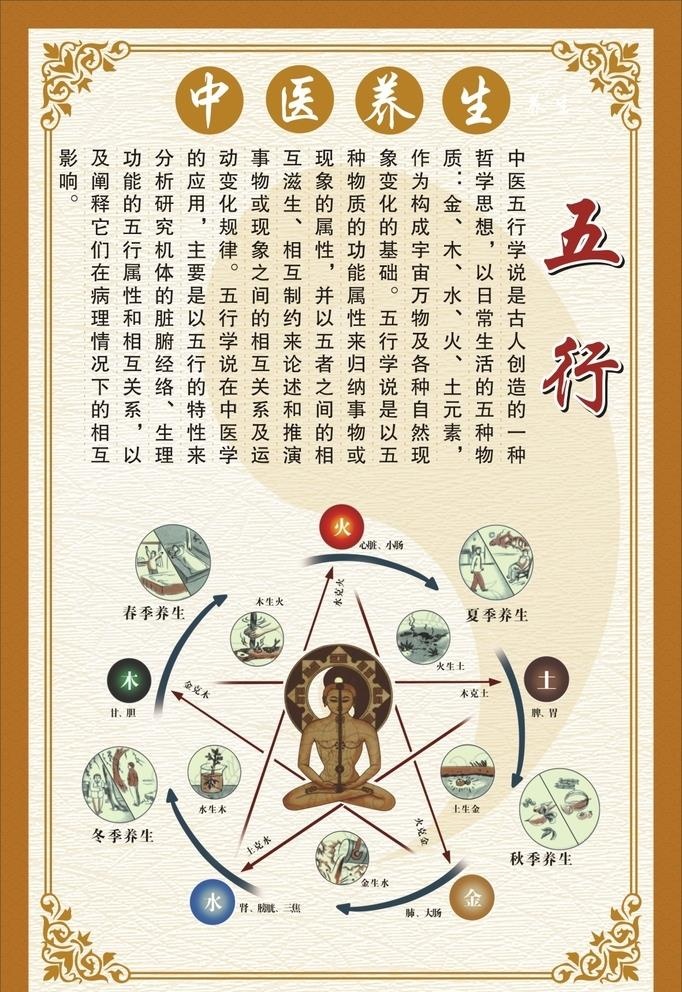 中医养生
五行
中医五行学说是古人创造的一种
哲学思想，以日常生活的五种物
质：金、木、水、火、土元素，
作为构成宇宙万物及各种自然现
象变化的基础。五行学说是以五
种物质的功能属性来归纳事物或
现象的属性，并以五者之间的相
互滋生、相互制约来论述和推演
事物或现象之间的相互关系及运
动变化规律。五行学说在中医学
的应用，主要是以五行的特性来
分析研究机体的脏腑经络、生理
功能的五行属性和相互关系，以
及阐释它们在病理情况下的相互
影响。
火
心脏、小肠
春季养生
木生火
水克火
夏季养生
火生土
木
甘、胆
金克木
木克土
土
脾、胃
冬季养生
水生木
土生金
秋季养生
土克水
火克金
金生水
水
肾、膀胱、三焦
肺、大肠
金